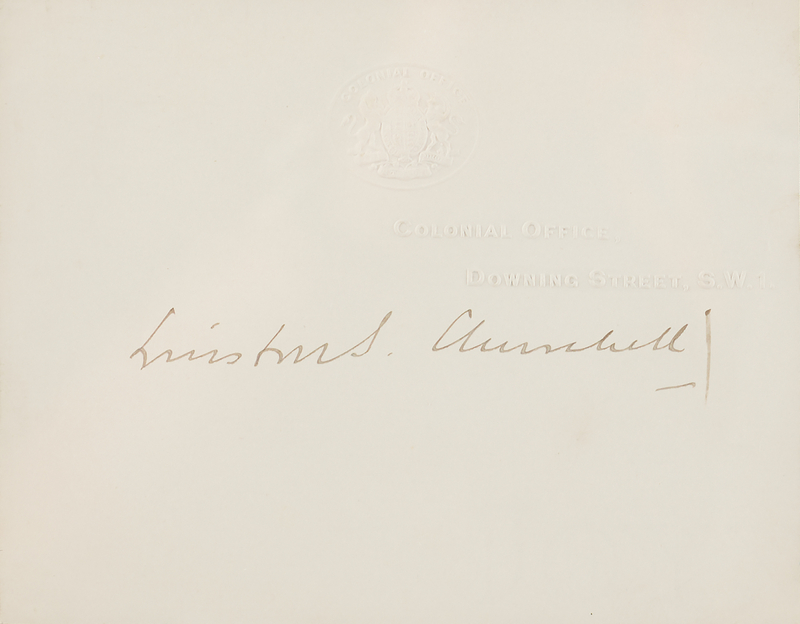 COLONIAL OFFICE
COLONIAL OFFICE,
DOWNING STREET, S.W.1.
Winston S. Churchill